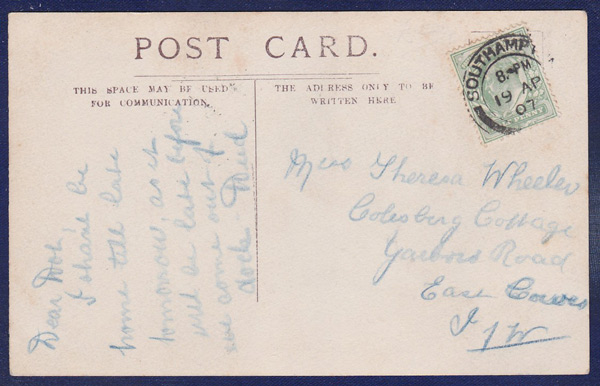 POST CARD.
THIS SPACE MAY BE USED
FOR COMMUNICATION.
THE ADDRESS ONLY TO BE
WRITTEN HERE
SOUTHAMPT
8-PM
19 AP
07
Dear
I shant be
home till late
tomorrow, as it
will be late before
we come out of
dock
Miss Theresa Wheeler
Colesberg Cottage
Yarboro Road
East Cowes
I W